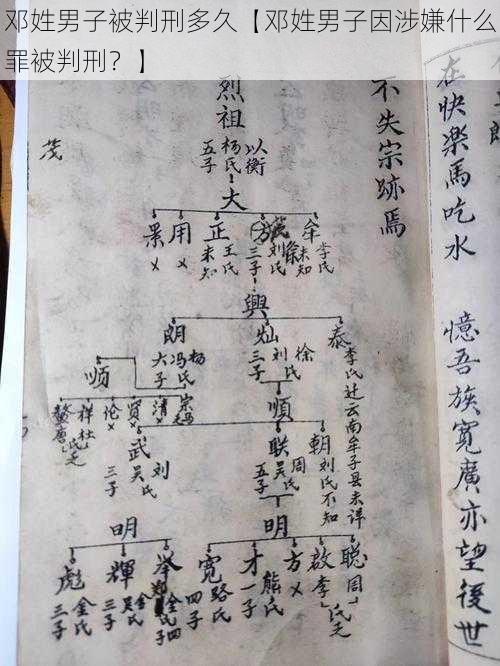 邓姓男子被判刑多久【邓姓男子因涉嫌什么
罪被判刑？】
在快樂馬吃水
憶吾族寬廣亦望後世
不失宗跡焉
烈祖
以衡
杨氏
五子
茂
大
牟 方 正 用 景
李氏
未知
刘氏
三子
王氏
未知
興
泰 灿 朗
李氏过云南牟子县未详
徐
刘氏
三子
杨
冯氏
六子
顺
宗 清 贤 伦 祥
順
朝 联 武
刘氏不知
周
吴氏
五子
刘
吴氏
三子
明
聪 啟 方 才 寬
周
李
氏
熊氏
一子
路氏
四子
明
举 輝 彪
金氏
四子
吴氏
三子
金氏
三子